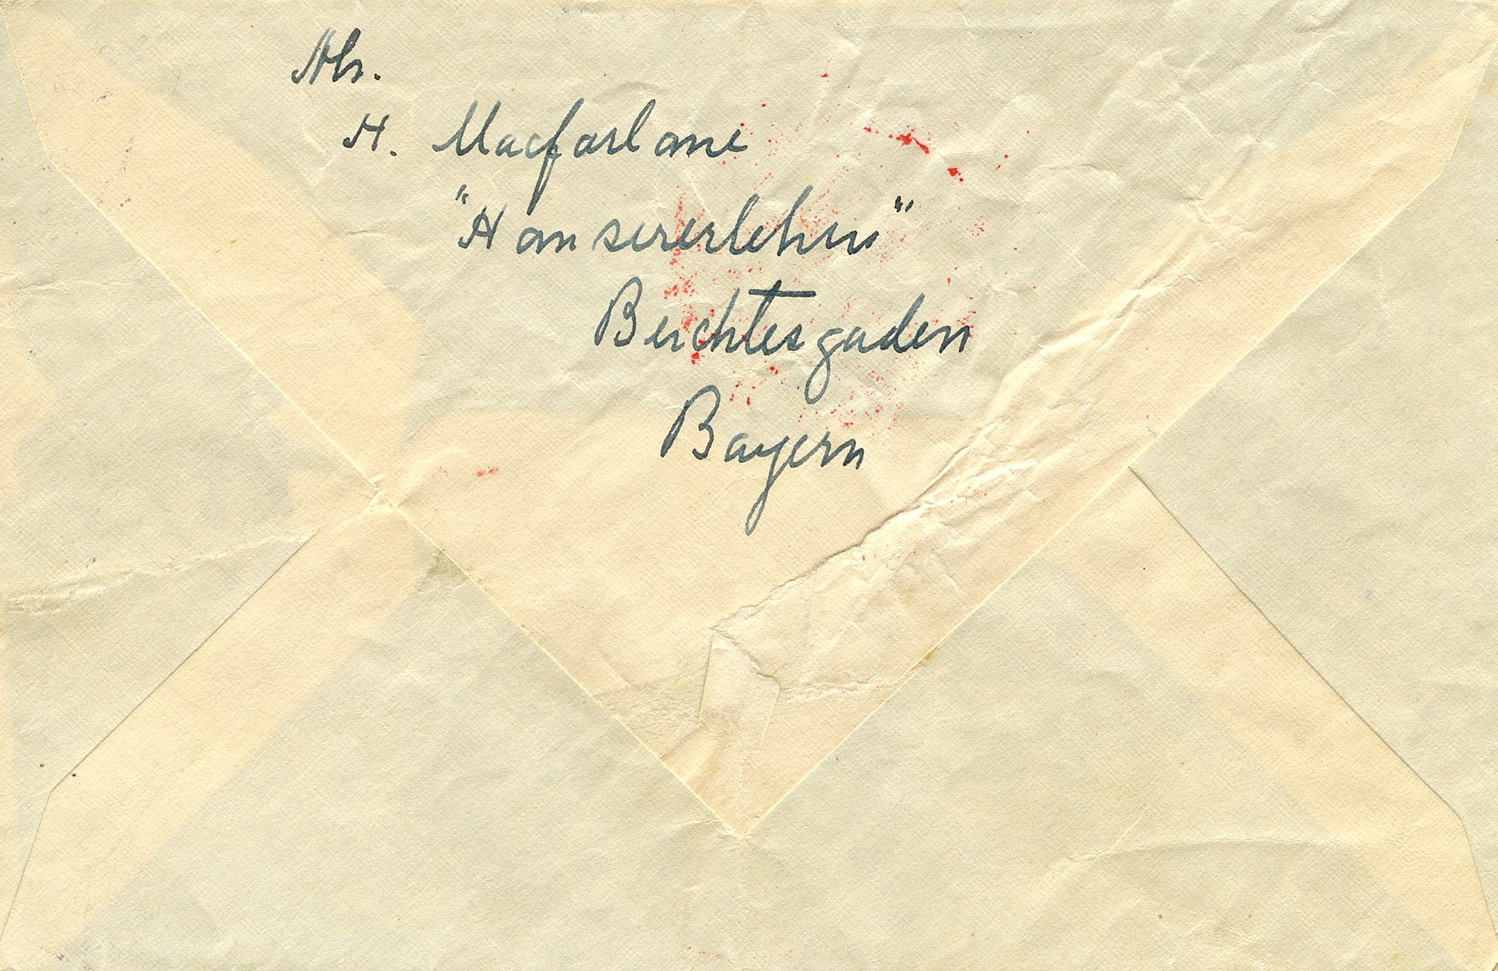 Abs.
H. Macfarlane
"Hansererlehen"
Berchtesgaden
Bayern